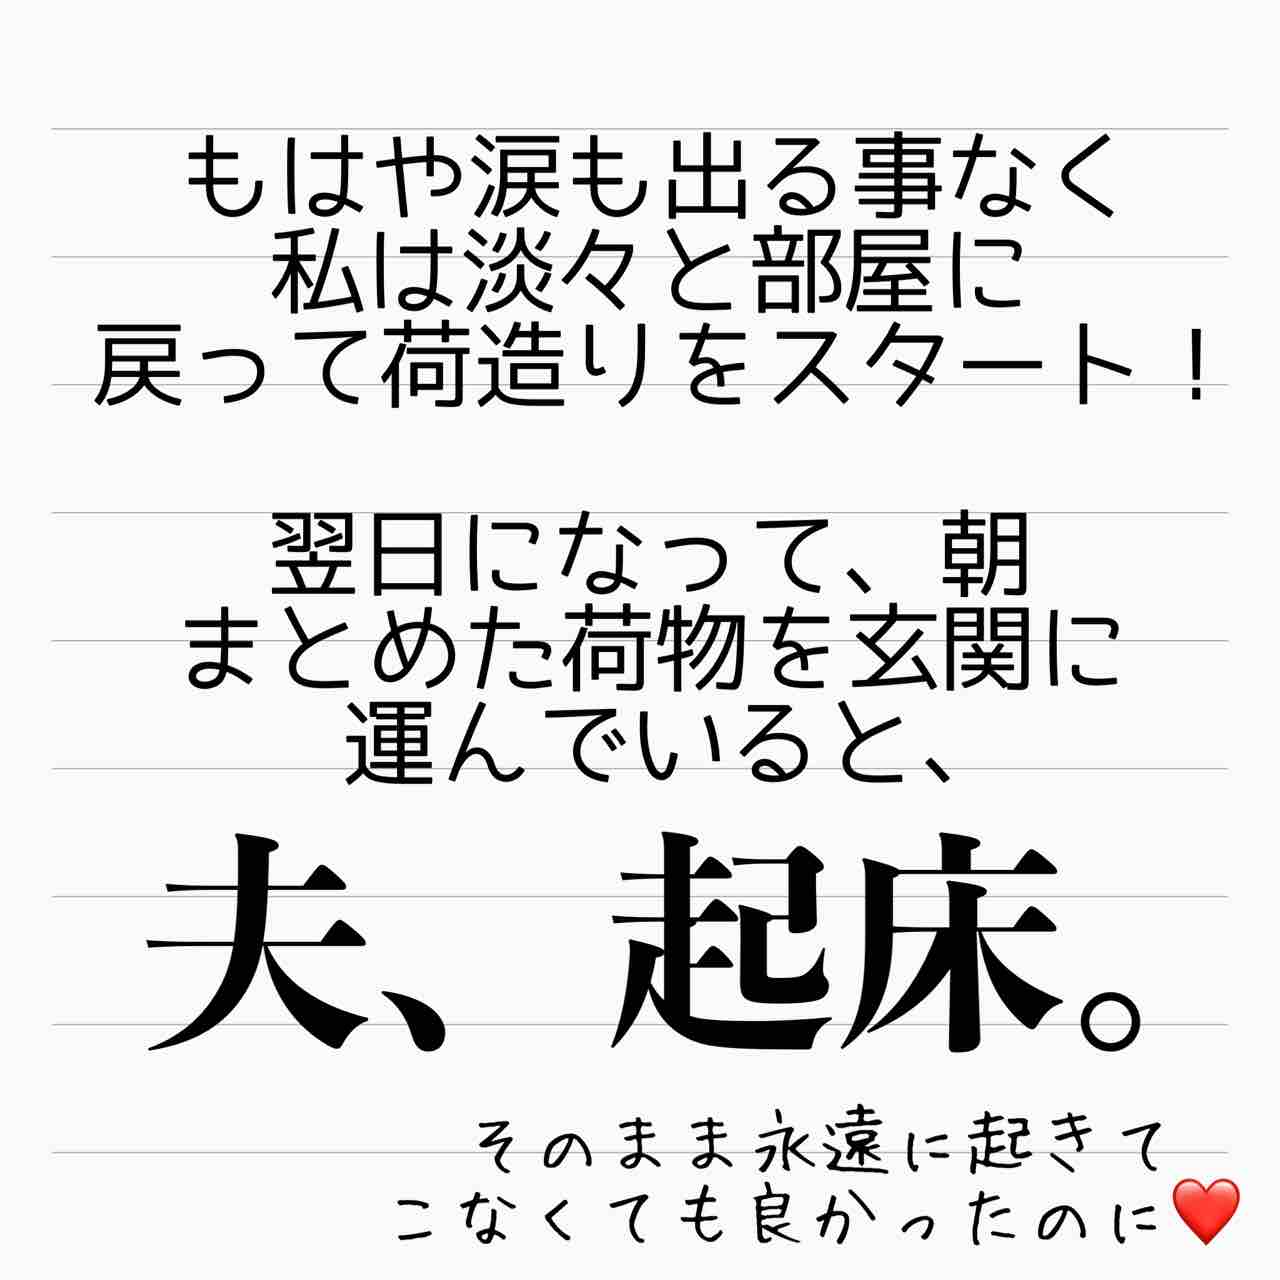 もはや涙も出る事なく
私は淡々と部屋に
戻って荷造りをスタート！
翌日になって、朝
まとめた荷物を玄関に
運んでいると、
夫、起床。
そのまま永遠に起きて
こなくても良かったのに❤️